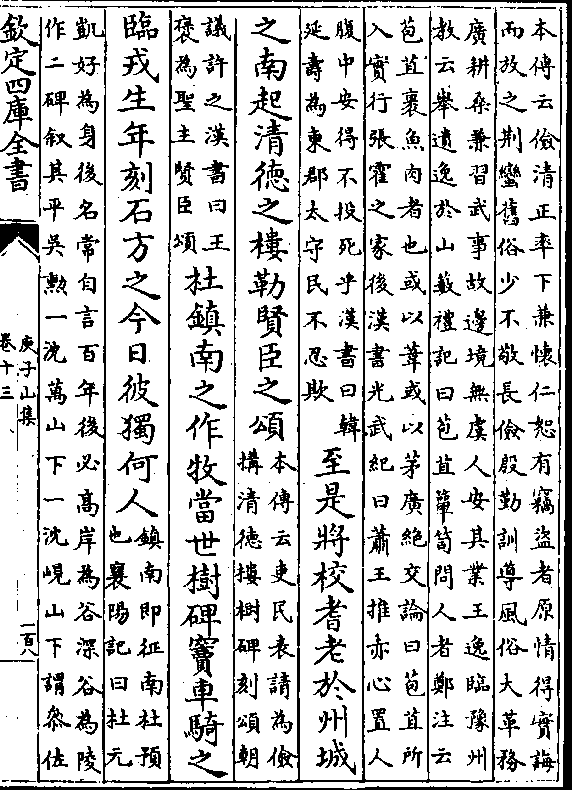 本傳云儉清正率下兼懷仁恕有竊盗者原情得實誨
而放之荆蠻舊俗少不敬長儉殷勤訓導風俗大革務
廣耕桑兼習武事故邊境無虞人安其業王逸臨豫州
教云舉遺逸於山藪禮記曰苞苴簞笥問人者鄭注云
苞苴裹魚肉者也或以葦或以茅廣絶交論曰苞苴所
入實行張霍之家後漢書光武紀曰蕭王推赤心置人
腹中安得不投死乎漢書曰韓
延壽為東郡太守民不忍欺
至是將校耆老於州城
之南起清德之樓勒賢臣之頌
本傳云吏民表請為儉
搆清德樓樹碑刻頌朝
議許之漢書曰王
襃為聖主賢臣頌
杜鎮南之作牧當世樹碑竇車騎之
臨戎生年刻石方之今日彼獨何人
鎮南即征南杜預
也襄陽記曰杜元
凱好為身後名常自言百年後必髙岸為谷深谷為陵
作二碑叙其平吳勲一沈萬山下一沈峴山下謂叅佐
欽定四庫全書
庾子山集
卷十三
一百八